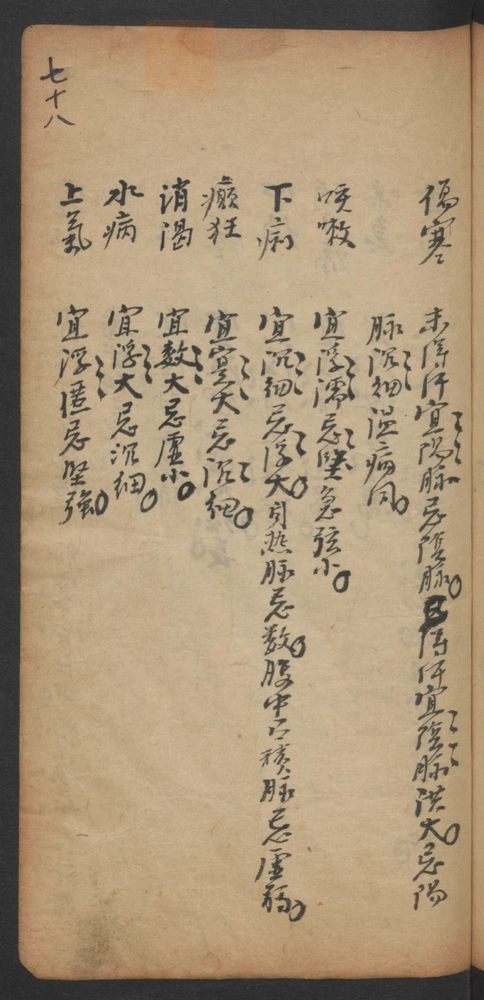 七十八
傷寒 未得汗宜陽脉忌陰脉已得汗宜陰脉洪大忌陽
脉沉細温病同
咳嗽 宜浮濡忌堅急弦小
下痢 宜沉細忌浮大身熱脉忌數腹中有積脉忌虛弱
癲狂 宜實大忌沉細
消渴 宜數大忌虛小
水病 宜浮大忌沉細
上氣 宜浮匿忌堅強